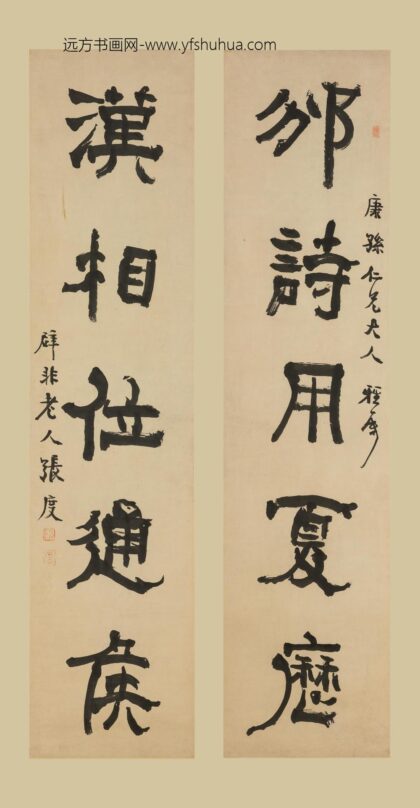 远方书画网-www.yfshuhua.com
邠詩用夏歷
仁兄大人 雅屬
漢相位通侯
辟非老人張度